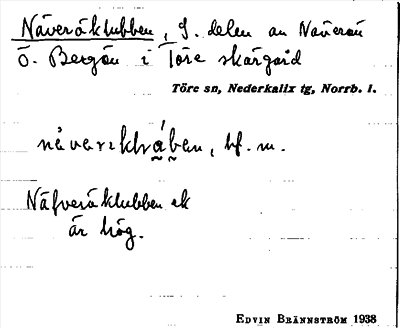 Näveråklubben, S. delen av Näverön
Ö. Bergön i Töre skärgård
Töre sn, Nederkalix tg, Norrb. l.
bf. m.
Näfveråklubben ek
är hög.
EDVIN BRÄNNSTRÖM 1938